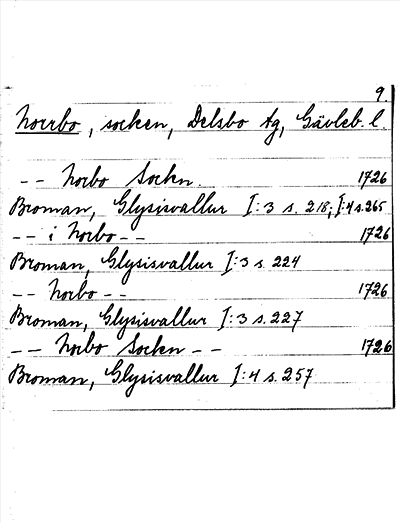 9.
Norrbo, socken, Delsbo tg, Gävleb. l.
-- Norbo Sockn. 1726
Broman, Glysisvallur I:3 s. 218; I:4 s. 265
-- i Norbo -- 1726
Broman, Glysisvallur I:3 s. 224
-- Norbo -- 1726
Broman, Glysisvallur I:3 s. 227
-- Norbo Sockn -- 1726
Broman, Glysisvallur I:4 s. 257